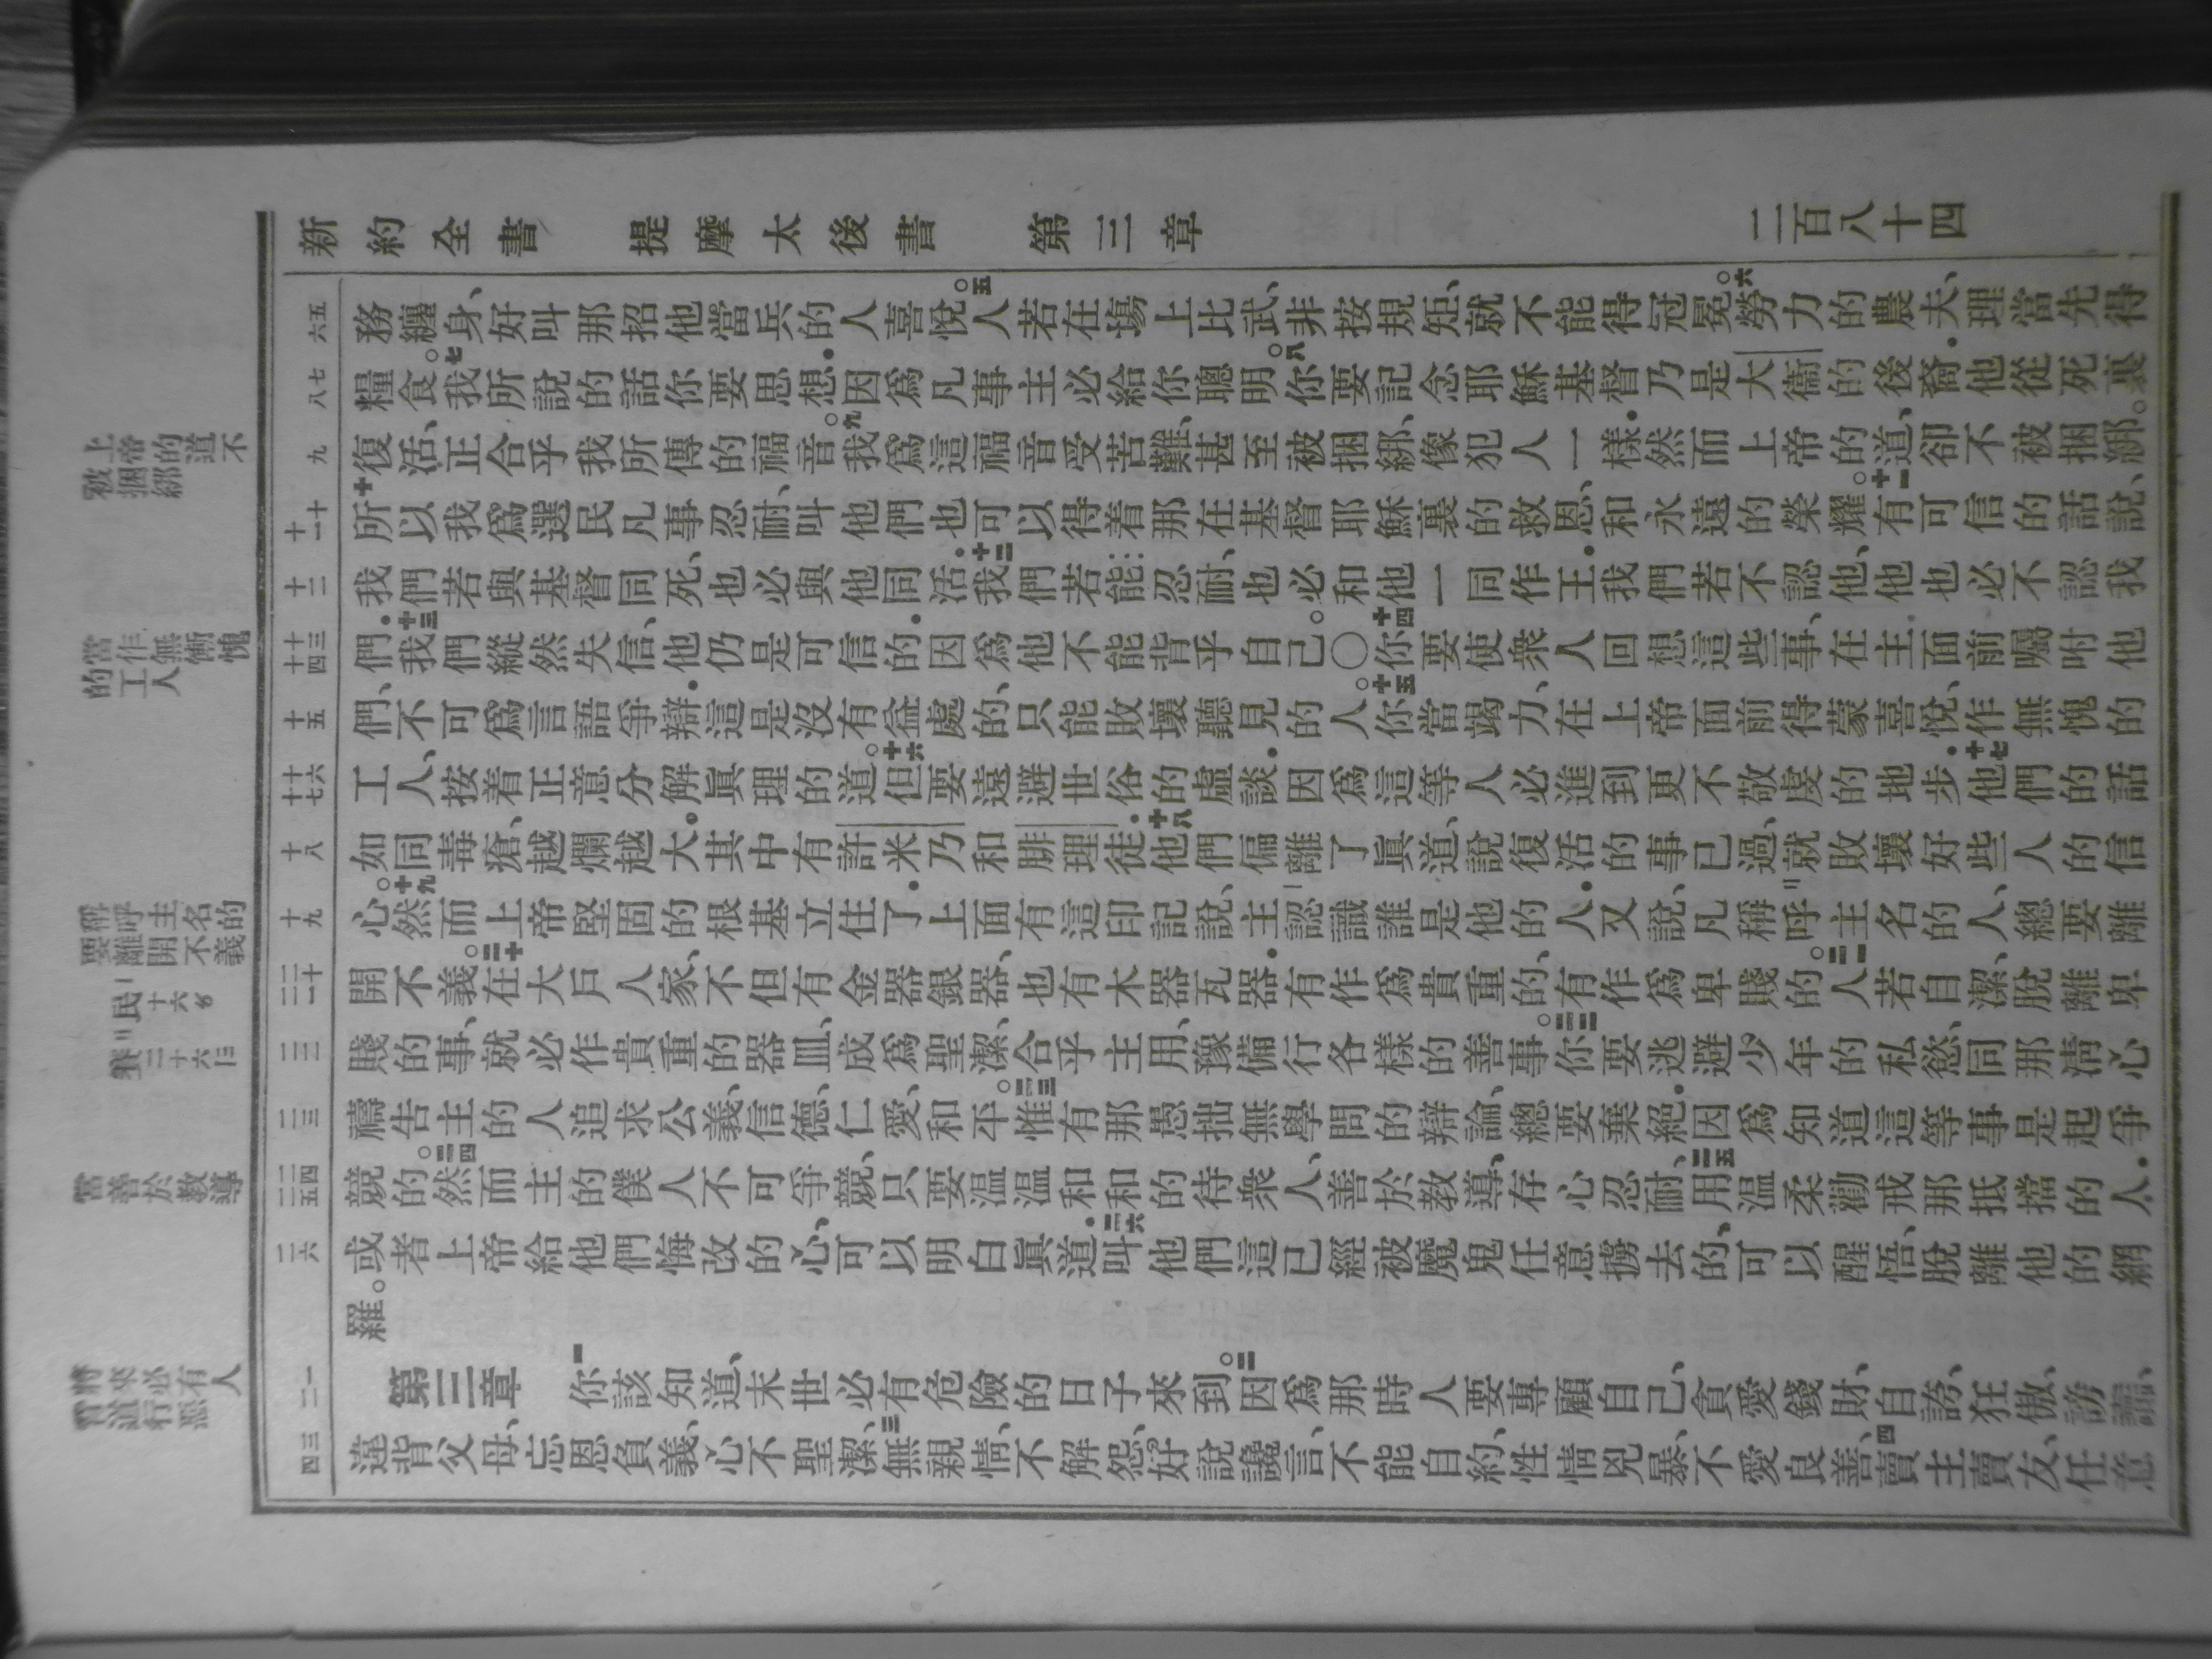 新約全書 提摩太後書 第三章 二百八十四
五 六
務纏身、好叫那招他當兵的人喜悅。五人若在塲上比武、非按規矩、就不能得冠冕。六勞力的農夫、理當先得
七 八
糧食。七我所說的話你要思想.因爲凡事主必給你聰明。八你要記念耶穌基督乃是大衞的後裔.他從死裏
九
復活、正合乎我所傳的福音。九我爲這福音受苦難、甚至被捆綁、像犯人一樣.然而上帝的道、卻不被捆綁。
十 十一
十所以我爲選民凡事忍耐、叫他們也可以得着那在基督耶穌裏的救恩、和永遠的榮耀。十一有可信的話說、
十二
我們若與基督同死、也必與他同活.十二我們若能忍耐、也必和他一同作王.我們若不認他、他也必不認我
十三 十四
們.十三我們縱然失信、他仍是可信的.因爲他不能背乎自己。〇十四你要使衆人回想這些事、在主面前囑咐他
十五
們、不可爲言語爭辯.這是沒有益處的、只能敗壞聽見的人。十五你當竭力、在上帝面前得蒙喜悅、作無愧的
十六 十七
工人、按着正意分解眞理的道。十六但要遠避世俗的虛談.因爲這等人必進到更不敬虔的地步.十七他們的話
十八
如同毒瘡、越爛越大。其中有許米乃和腓理徒.十八他們偏離了眞道、說復活的事已過、就敗壞好些人的信
十九
心。十九然而上帝堅固的根基立住了.上面有這印記說、主認識誰是他的人.又說、凡稱呼主名的人、總要離
二十 二一
開不義。二十在大戶人家、不但有金器銀器、也有木器瓦器.有作爲貴重的、有作爲卑賤的。二一人若自潔、脫離卑
二二
賤的事、就必作貴重的器皿、成爲聖潔、合乎主用、豫備行各樣的善事。二二你要逃避少年的私慾、同那淸心
二三
禱告主的人追求公義、信德、仁愛、和平。二三惟有那愚拙無學問的辯論、總要棄絕.因爲知道這等事是起爭
二四 二五
競的。二四然而主的僕人不可爭競、只要溫溫和和的待衆人、善於教導、存心忍耐、二五用溫柔勸戒那抵擋的人.
二六
或者上帝給他們悔改的心、可以明白眞道.二六叫他們這已經被魔鬼任意擄去的、可以醒悟、脫離他的網
羅。
一 二
第三章 一你該知道、末世必有危險的日子來到。二因爲那時人要專顧自己、貪愛錢財、自誇、狂傲、謗讟、
三 四
違背父母、忘恩負義、心不聖潔、三無親情、不解怨、好說讒言、不能自約、性情兇暴、不愛良善、四賣主賣友、任意
上帝的道不
被捆綁
當作無慚愧
的工人
稱呼主名的
要離開不義
民十六
賽二十六
當善於教導
將來必有人
冒道行惡